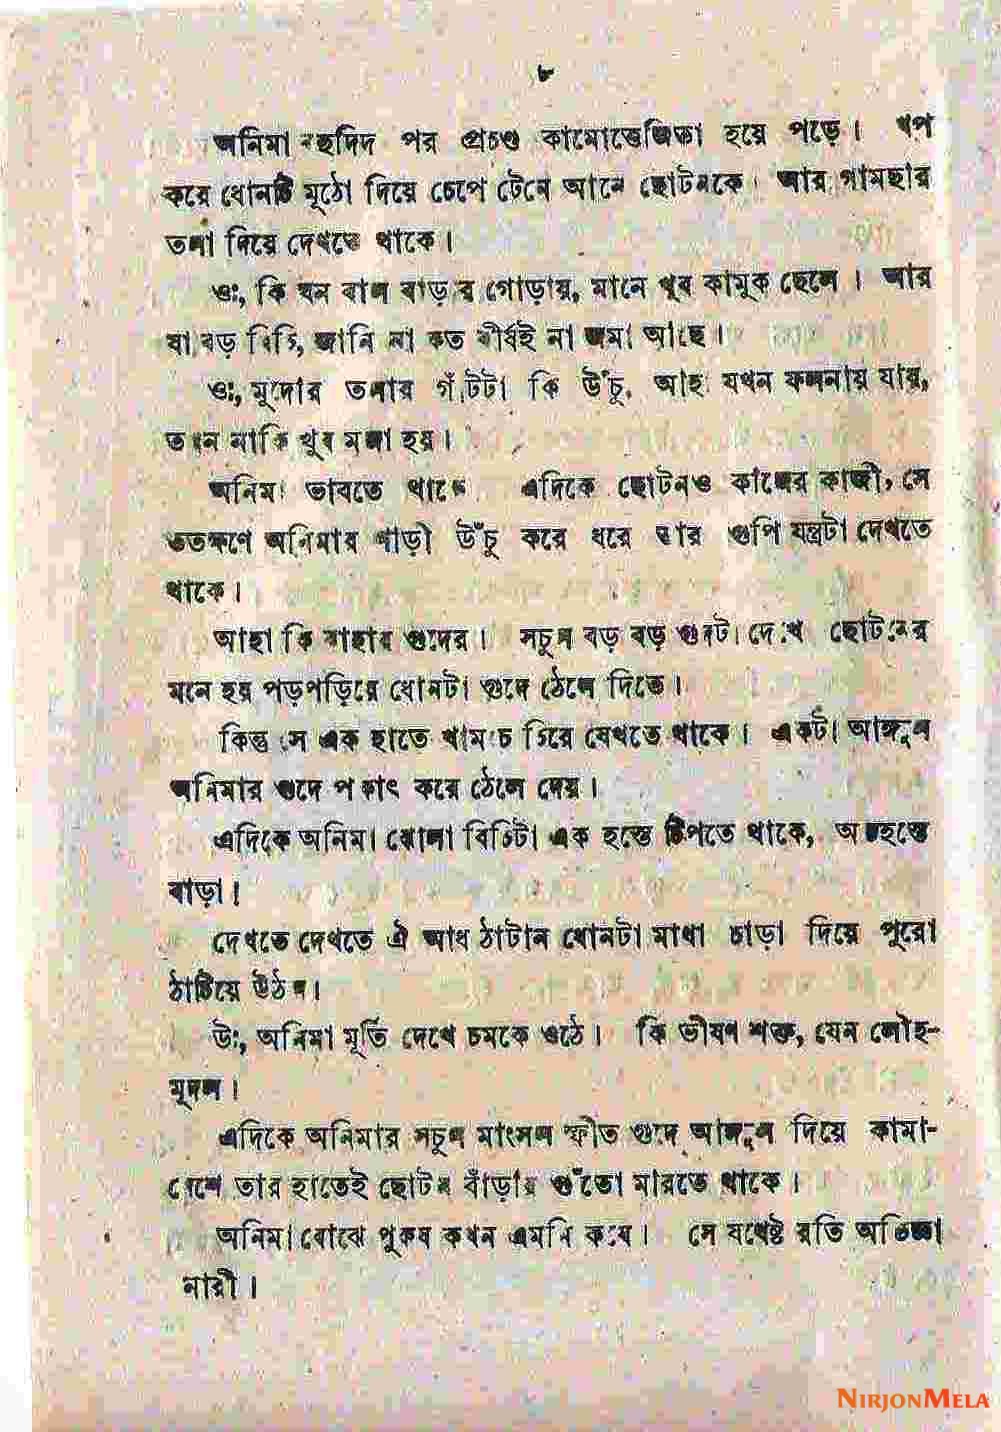 ৮
অনিমা বহুদিন পর প্রচণ্ড কামোত্তেজিতা হয়ে পড়ে। খপ
করে ধোনটি মুঠো দিয়ে চেপে টেনে আনে ছোটনকে। আর গামছার
তলা দিয়ে দেখতে থাকে।
ওঃ, কি ঘন বাল বাড়ার গোড়ায়, মানে খুব কামুক ছেলে। আর
যা বড় বিচি, জানি না কত বীর্যই না জমা আছে।
ওঃ, মুদোর তলার গাঁটটা কি উঁচু, আহ যখন ফলনায় যায়,
তখন নাকি খুব মজা হয়।
অনিমা ভাবতে থাকে এদিকে ছোটনও কাজের কাজী, সে
ততক্ষণে অনিমার শাড়ী উঁচু করে ধরে তার গুপি যন্ত্রটা দেখতে
থাকে।
আহা কি বাহার গুদের। সচুল বড় বড় গুদটা দেখে ছোটনের
মনে হয় পড়পড়িয়ে ধোনটা গুদে ঠেলে দিতে।
কিন্তু সে এক হাতে খামচে ধরে দেখতে থাকে। একটা আঙ্গুল
অনিমার গুদে পকাৎ করে ঠেলে দেয়।
এদিকে অনিমা ঝোলা বিচিটা এক হস্তে টিপতে থাকে, অন্যহস্তে
বাড়া।
দেখতে দেখতে ঐ আধ ঠাটান ধোনটা মাথা চাড়া দিয়ে পুরো
ঠাটিয়ে উঠল।
উঃ, অনিমা মূর্তি দেখে চমকে ওঠে। কি ভীষণ শক্ত, যেন লৌহ-
মুদল।
এদিকে অনিমার সচুল মাংসল স্ফীত গুদে আঙ্গুল দিয়ে কামা-
বেশে তার হাতেই ছোটন বাঁড়ার গুঁতো মারতে থাকে।
অনিমা বোঝে পুরুষ কখন এমনি করে। সে যথেষ্ট রতি অভিজ্ঞা
নারী।
NIRJONMELA